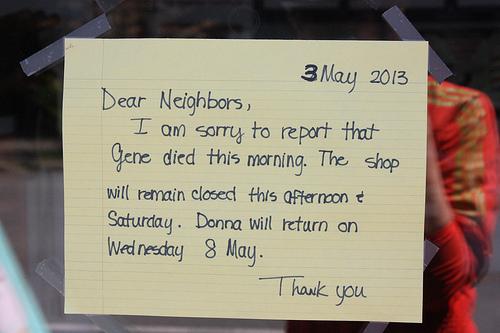 3 May 2013
Dear Neighbors,
I am sorry to report that
Gene died this morning. The shop
will remain closed this afternoon &
Saturday. Donna will return on
Wednesday 8 May.
Thank you